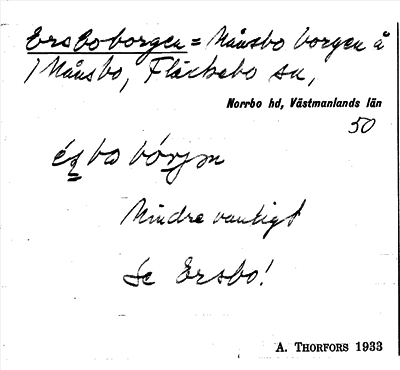 Ersboborgen = Månsbo borgen å
/ Månsbo, Fläckebo sn,
Norrbo hd, Västmanlands län
50
Mindre vanligt
Se Ersbo!
A. THORFORS 1933